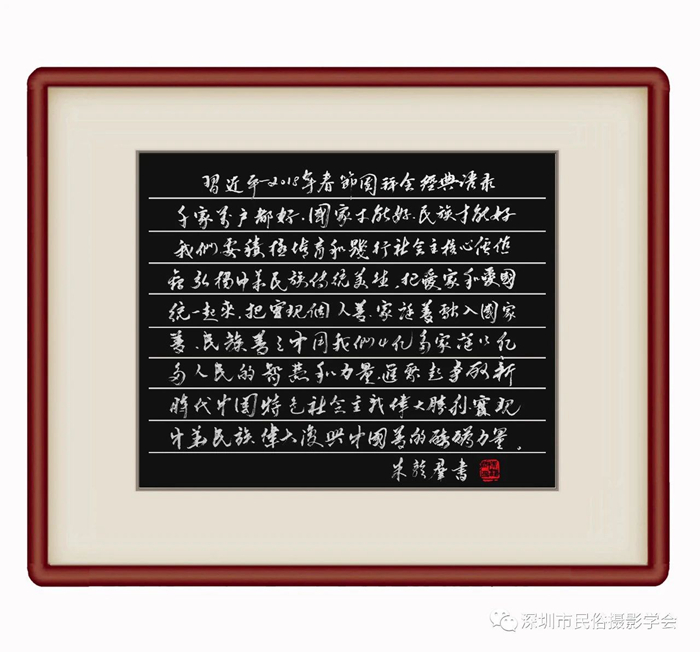 習近平2018年春節團拜会經典语录
千家萬户都好.國家才能好.民族才能好
我們要積極培育和踐行社会主核心價值
弘揚中華民族传统美德.把愛家和愛國
统一起來.把實現個人夢.家庭夢融入國家
夢.民族夢之中国我們4亿多家庭13亿
多人民的智慧和力量.匯聚起爭取新
時代中国特色社会主義偉大勝利.實現
中華民族偉大復興中國夢的磅礴力量.
朱 書
深圳市民俗摄影学会